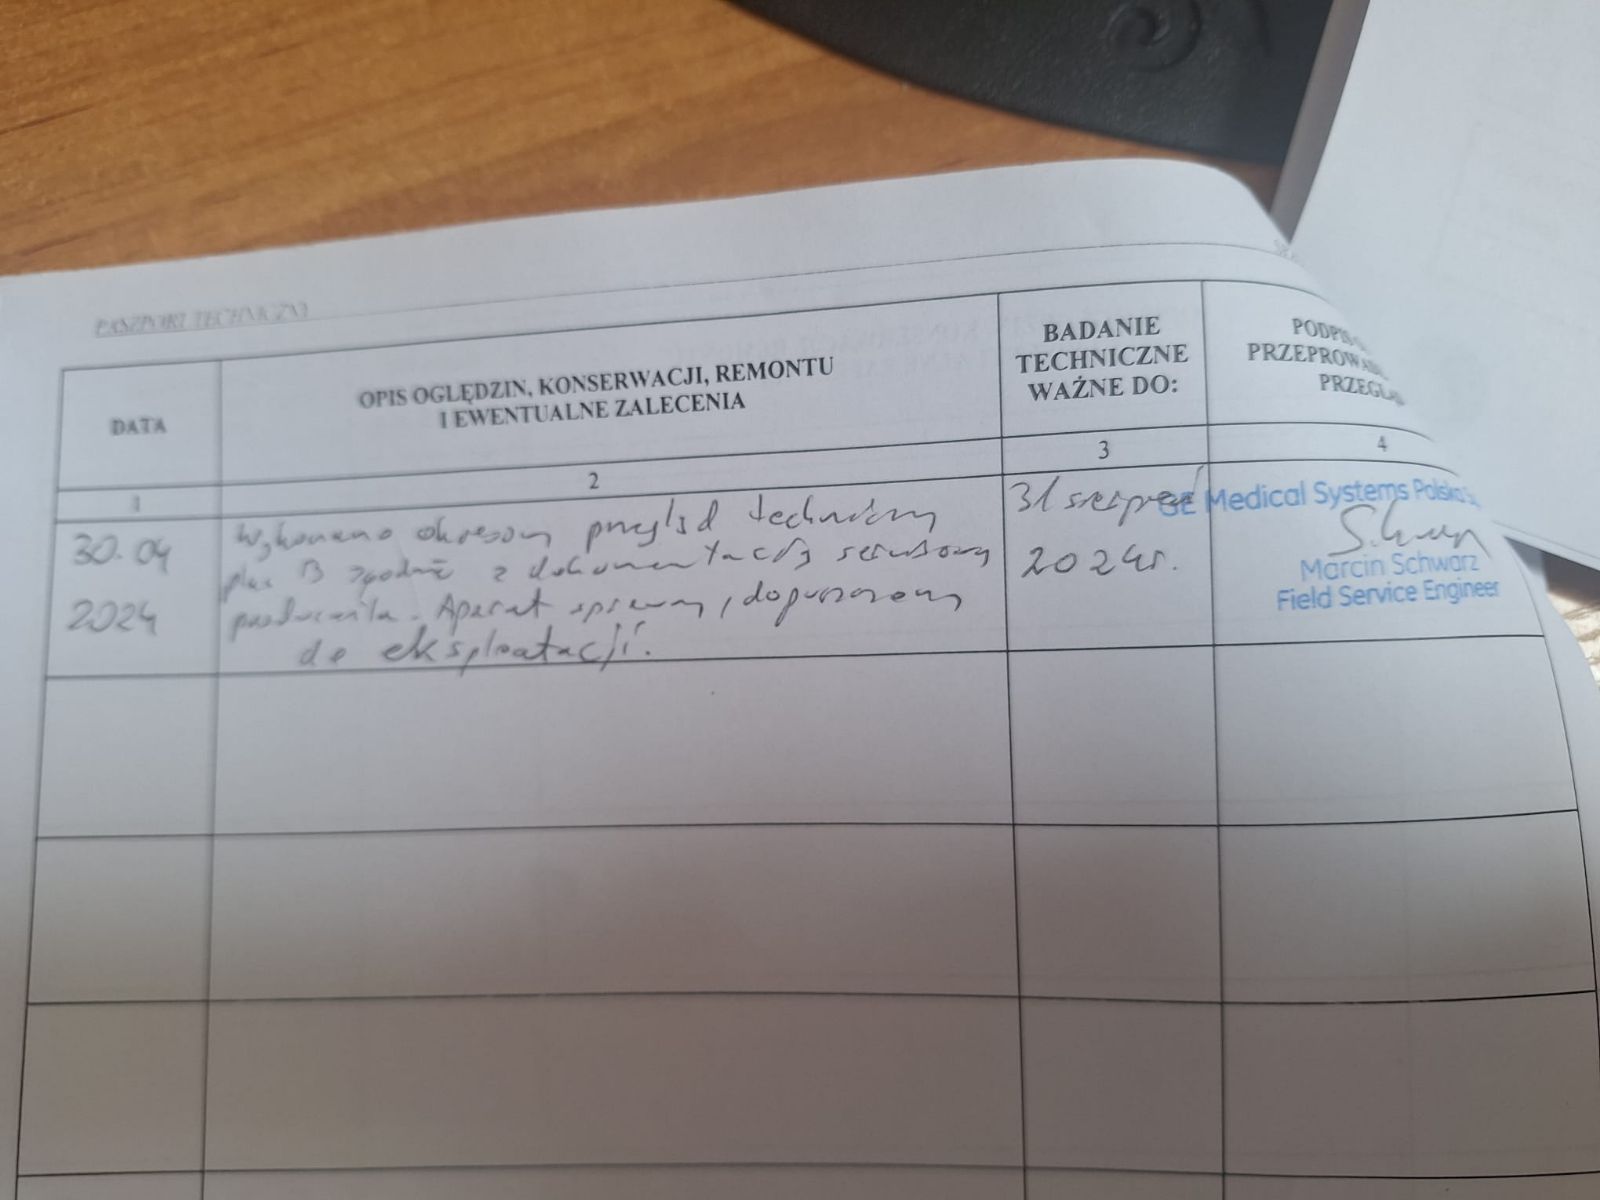 PASZPORT TECHNICZNY
DATA
OPIS OGLĘDZIN, KONSERWACJI, REMONTU
I EWENTUALNE ZALECENIA
BADANIE
TECHNICZNE
WAŻNE DO:
PODPIS
PRZEPROWA
PRZEGLĄ
1
2
3
4
30.04
2024
Wykonano okresowy przegląd techniczny
plan B zgodnie z dokumentacją serwisową
producenta. Aparat sprawny, dopuszczony
do eksploatacji.
31 sierpień
2024r.
GE Medical Systems Polska
Schwarz
Marcin Schwarz
Field Service Engineer